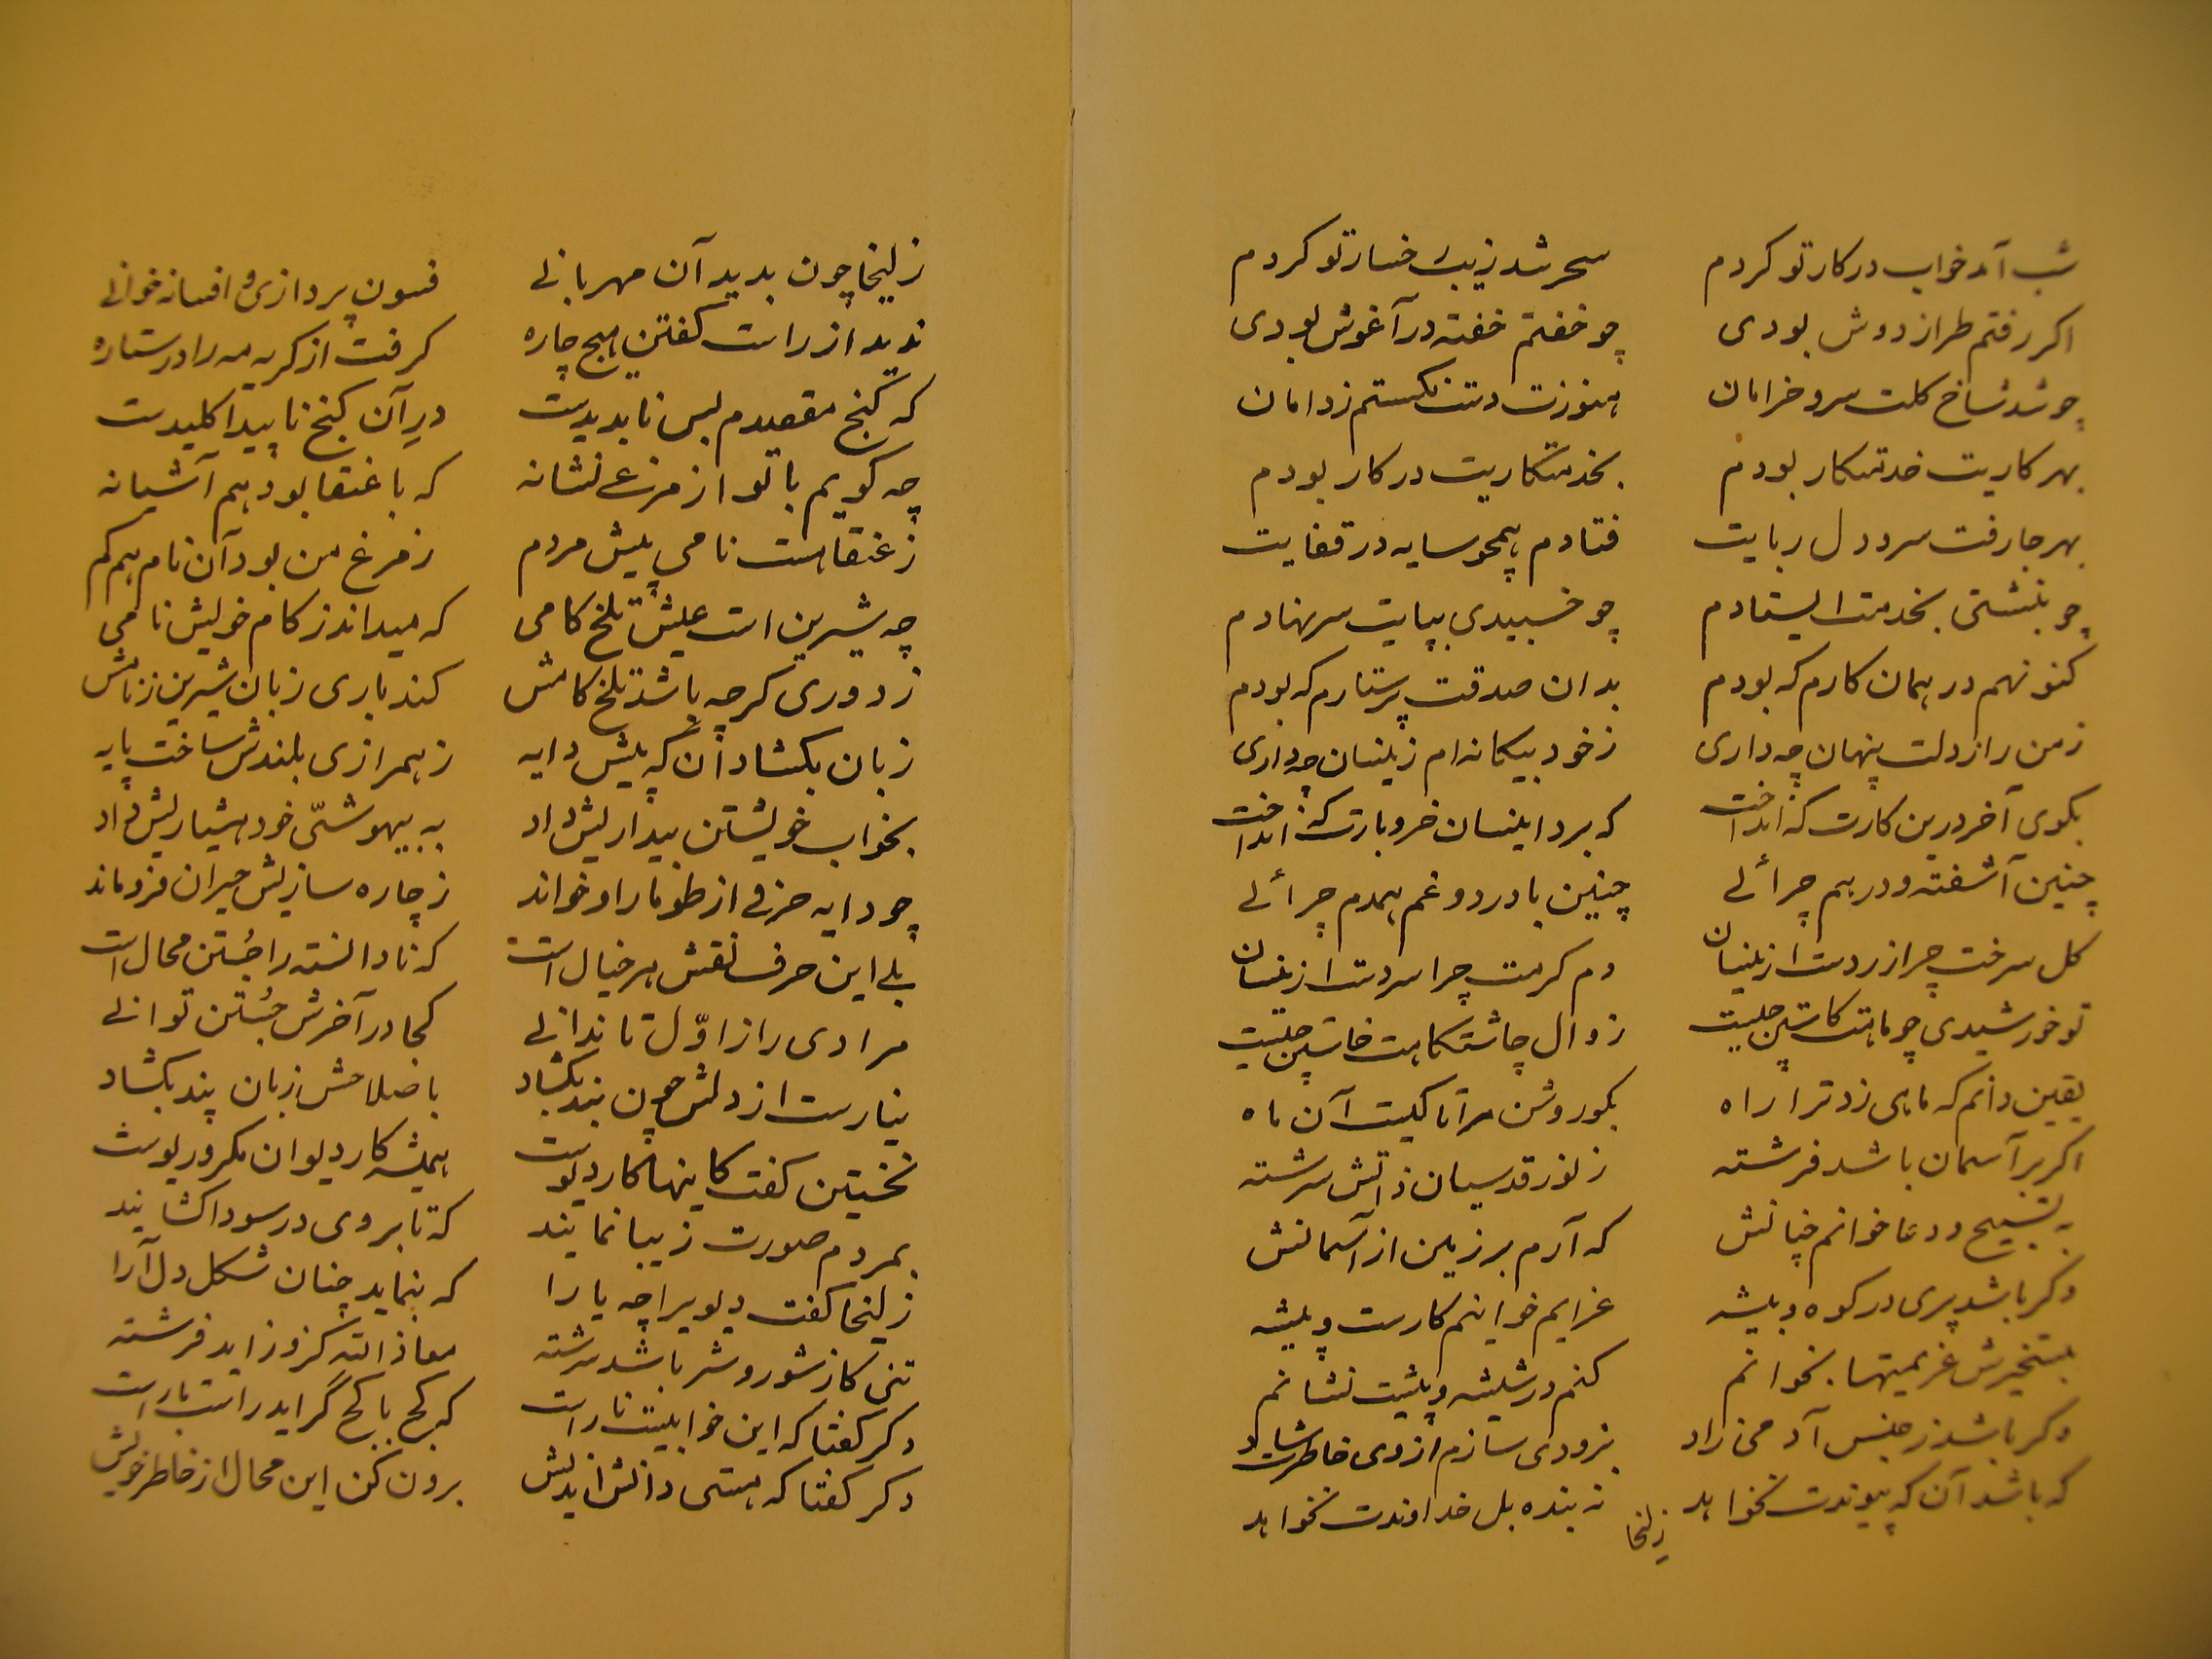 شب آمد خواب در کار تو کردم سحر شد زیب رخسار تو کردم
اکر رفتم طراز دوش بودی چو خفتم خفته در آغوش بودی
چو شد شاخ کلت سرو خرامان هنوزت دست نکسستم ز دامان
بهر کاریت خدمتکار بودم بخدمتکاریت در کار بودم
بهر جا رفت سرو دل ربایت فتادم همچو سایه در قفایت
چو بنشستی بخدمت ایستادم چو خسبیدی بپایت سر نهادم
کنونهم در همان کارم که بودم بدان صدقت پرستارم که بودم
ز من راز دلت پنهان چه داری ز خود بیکانه ام زینسان چه داری
بکوی آخر درین کارت که انداخت که برد اینسان خر و بارت که انداخت
چنین آشفته و درهم چرائی چنین با درد و غم همدم چرائی
کل سرخت چرا زردست ازینسان دم کرمت چرا سردست ازینسان
تو خورشیدی چو ماهت کاستن چیست زوال چاشتکاهت خاستن چیست
یقین دانم که ماهی زد ترا راه بکو روشن مرا تا کیست آن ماه
اکر بر آسمان باشد فرشته ز نور قدسیان ذاتش سرشته
به تسبیح و دعا خوانم چنانش که آرم بر زمین از آسمانش
وکر باشد پری در کوه و بیشه عزایم خوانیم کارست و پیشه
بتسخیرش عزیمتها بخوانم کنم در شیشه و پیشت نشانم
وکر باشد ز جنس آدمی زاد بزودی سازم از وی خاطرت شاد
که باشد آن که پیوندت نخواهد نه بنده بل خداوندت نخواهد
زلیخا
زلیخا چون بدید آن مهربانی فسون پردازی و افسانه خوانی
ندید از راست کفتن هیچ چاره کرفت از کریه مه را در ستاره
که کنج مقصدم بس ناپدیدست در آن کنج ناپیدا کلیدست
چه کویم با تو از مرغی نشانه که با عنقا بود هم آشیانه
ز عنقا هست نامی پیش مردم ز مرغ من بود آن نام هم کم
چه شیرین است عیش تلخ کامی که میداند ز کام خویش نامی
ز دوری کرچه باشد تلخ کامش کند باری زبان شیرین ز نامش
زبان بکشاد آن که پیش دایه ز همرازی بلندش ساخت پایه
بخواب خویشتن بیداریش داد به بیهوشی خود هشیاریش داد
چو دایه حرفی از طومار او خواند ز چاره سازیش حیران فرو ماند
بلی این حرف نقش هر خیال است که نادانسته را جستن محال است
مرادی را ز اول تا ندانی کجا در آخرش جستن توانی
نیارست از دلش چون بند بکشاد باصلاحش زبان پند بکشاد
نخستین کفت کاینها کار دیوست همیشه کار دیوان مکر و ریوست
بمردم صورت زیبا نمایند که تا بر وی در سودا کشایند
زلیخا کفت دیویرا چه یارا که بنماید چنان شکل دل آرا
تنی کاز شور و شر باشد سرشته معاذ الله کزو زاید فرشته
دکر کفتا که این خوابیست ناراست که کج با کج گراید راست با راست
دکر کفتا که هستی دانش اندیش برون کن این محال از خاطر خویش